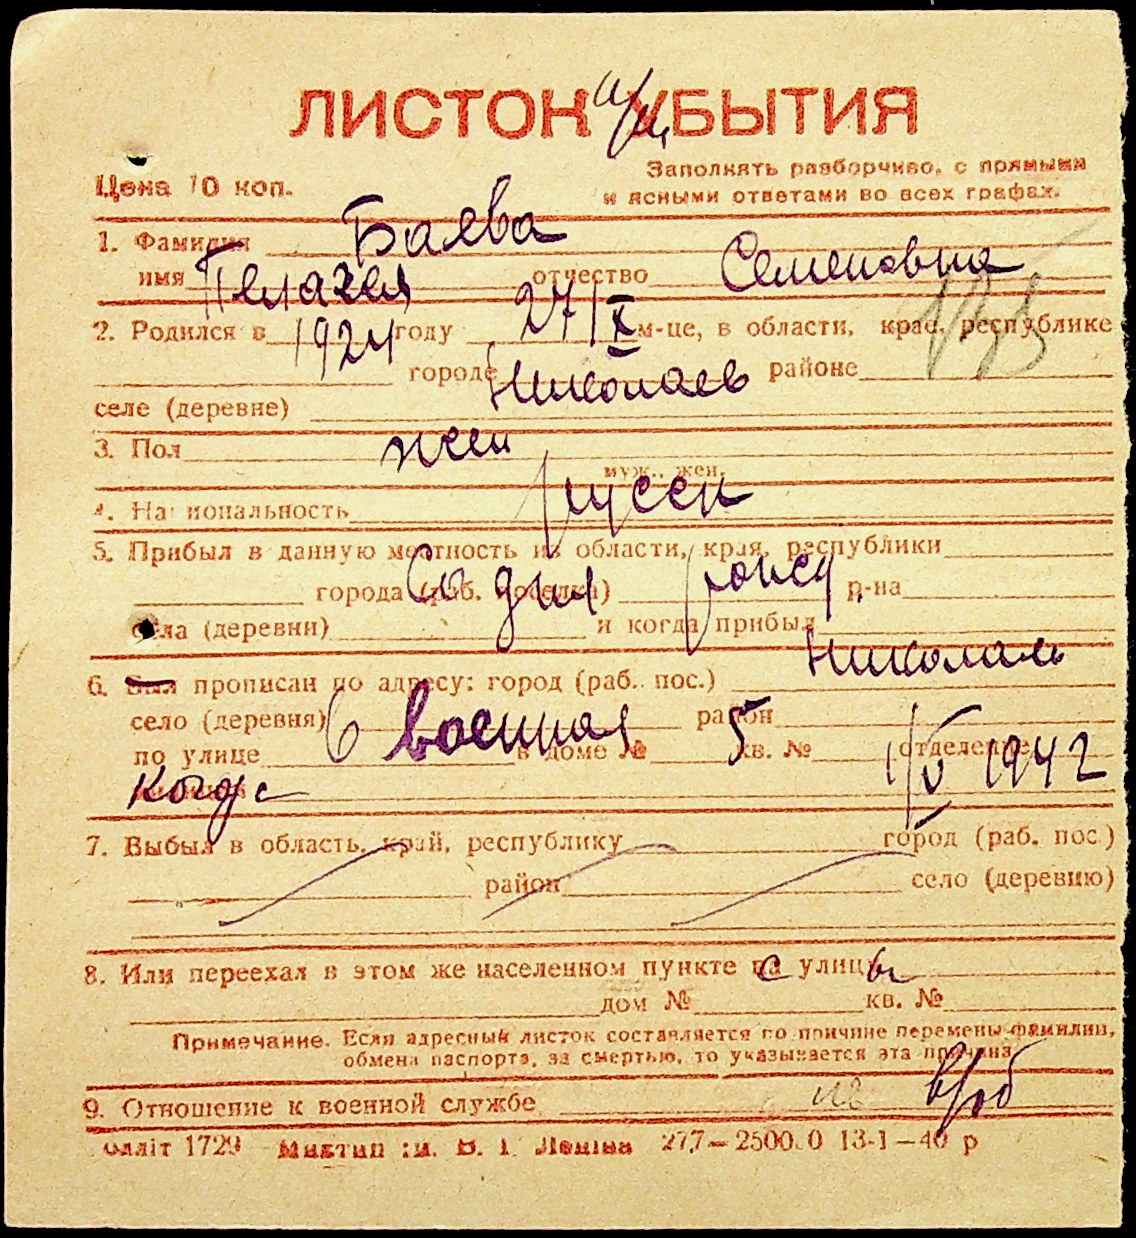 ЛИСТОК УБЫТИЯ
Цена 10 коп.
Заполнять разборчиво, с прямыми
и ясными ответами во всех графах.
1. Фамилия Баева
имя Пелагея отчество Семеновна
2. Родился в 1924 году 27/X м-це, в области, крае, республике
городе Николаев районе
селе (деревне)
3. Пол жен
муж., жен.
4. Национальность русск
5. Прибыл в данную местность из области, края, республики
города (раб. поселка) Со дня рожд р-на
села (деревни) и когда прибыл
6. Был прописан по адресу: город (раб. пос.) Николаев
село (деревня) район
по улице 6 военная в доме № 5 кв. № отделение
когда 1/V 1942
7. Выбыл в область, край, республику город (раб. пос.)
район село (деревню)
8. Или переехал в этом же населенном пункте с улицы
дом № кв. №
Примечание. Если адресный листок составляется по причине перемены фамилии,
обмена паспорта, за смертью, то указывается эта причина
9. Отношение к военной службе н/в
Олліт 1729 ім. В. І. Леніна 277—25000 13-1—40 р